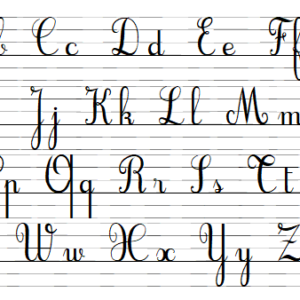 b Cc Dd Ee Ff
Jj Kk Ll Mm
Pp Qq Rr Ss Tt
Ww Xx Yy Z